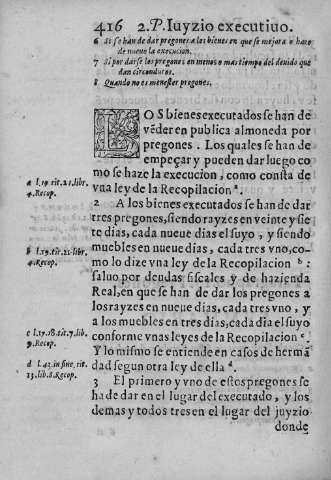 416 2. P. Iuyzio executiuo.
6 Si se han de dar pregones a los bienes en que se mejora o haze
de nueuo la execucion.
7 Si por darse los pregones en menos o mas tiempo del deuido que
dan circonductos.
8 Quando no es menester pregones.
LOS bienes executados se han de
vẽder en publica almoneda por
pregones. Los quales se han de
empeçar y pueden dar luego co
mo se haze la execucion, como consta de
vna ley de la Recopilacion ª.
a l. 19. tit. 21. libr.
4. Recop.
2 A los bienes executados se han de dar
tres pregones, siendo rayzes en veinte y sie
te dias, cada nueue dias el suyo, y siendo
muebles en nueue dias, cada tres vno, co-
mo lo dize vna ley de la Recopilacion b:
b l. 19. tit. 21. libr.
4. Recop.
saluo por deudas fiscales y de hazienda
Real, en que se han de dar los pregones a
los rayzes en nueue dias, cada tres vno, y
a los muebles en tres dias, cada dia el suyo
conforme vnas leyes de la Recopilacion c.
c l. 17. 18. tit. 7. lib.
9. Recop.
Y lo mismo se entiende en casos de hermã
dad segun otra ley de ella d.
d l. 42. in fine, tit.
13. lib. 8. Recop.
3 El primero y vno de estos pregones se
ha de dar en el lugar del executado, y los
demas y todos tres en el lugar del juyzio
donde